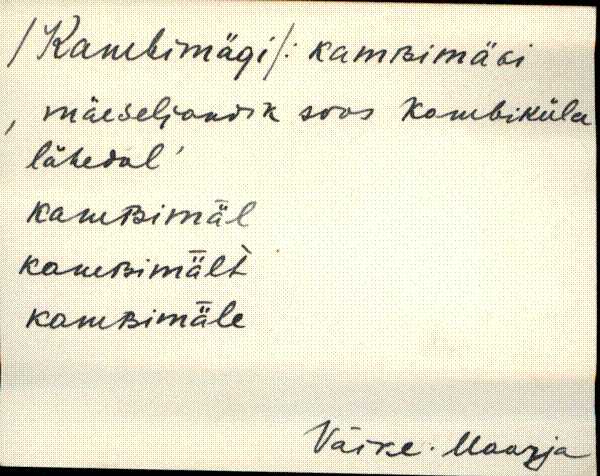 /Kambimägi/: kamʙimäɢi
‚ mäeseljandik soos Kambiküla
lähedal ’
kamʙimǟl
kamʙimǟlt̀
kamʙimǟle
Väike-Maarja